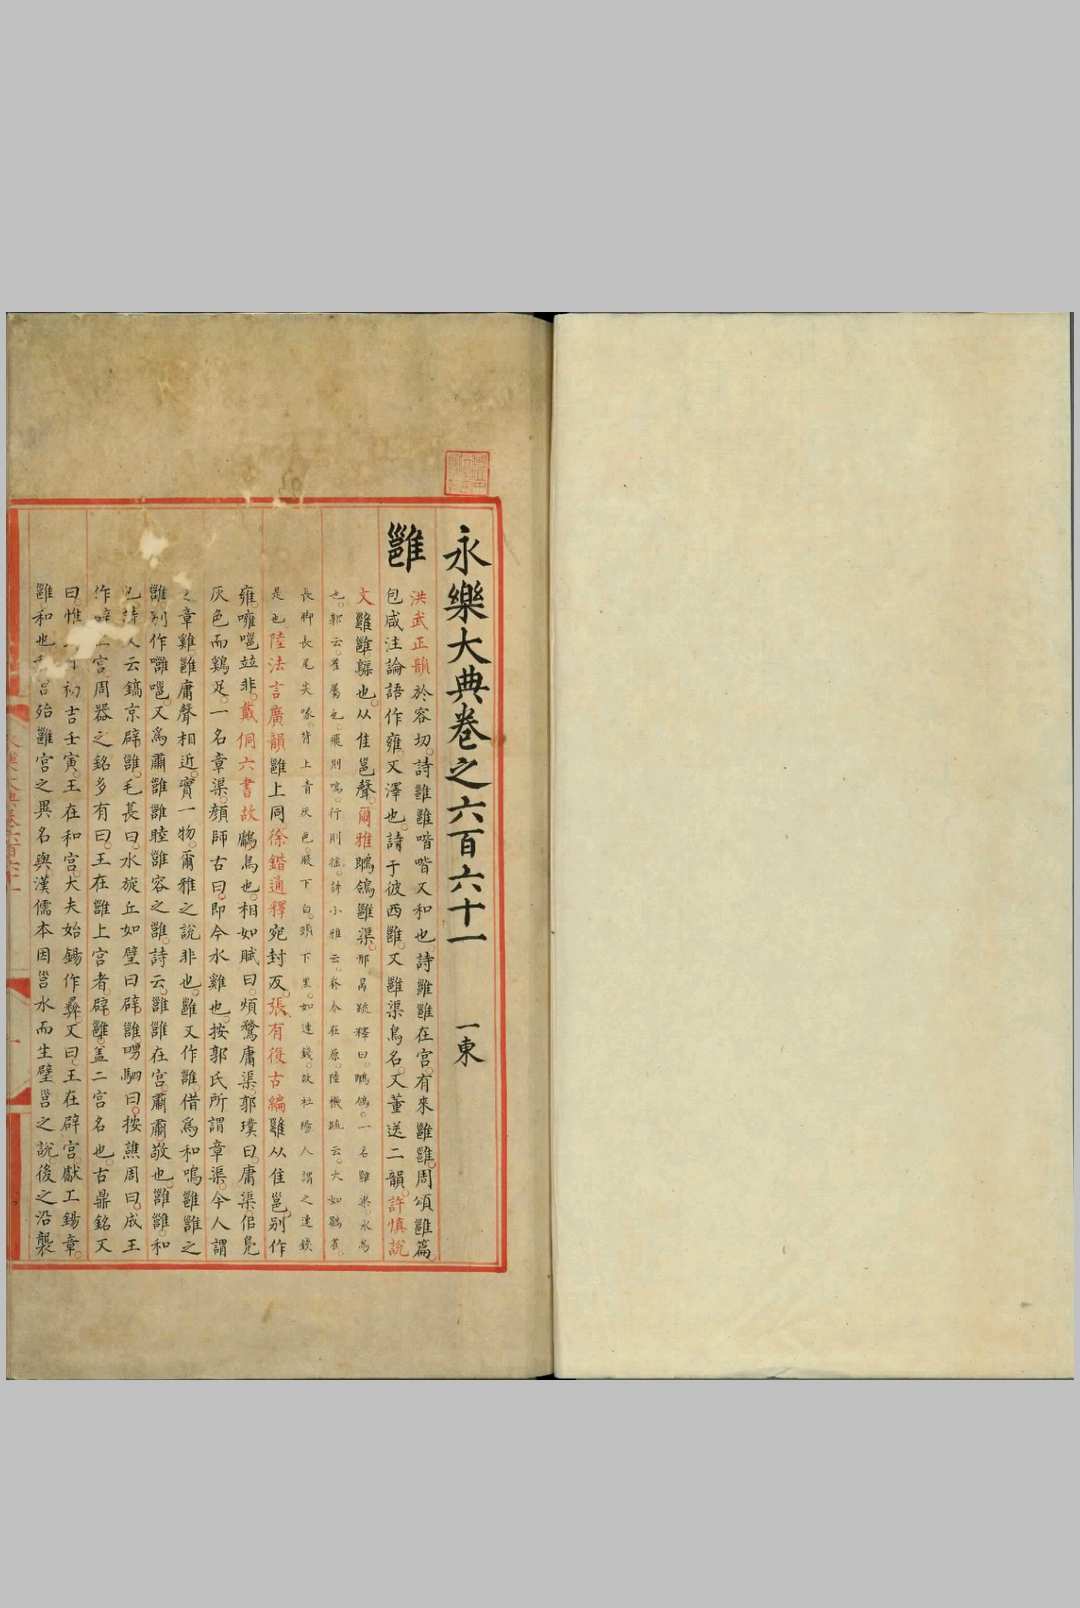 永樂大典卷之六百六十一 一東
雝
洪武正韻於容切。詩雝雝喈喈又和也詩雝雝在宫。有來雝雝。周頌雝篇。
包咸注論語作雍又澤也。詩于彼西雝。又雝渠鳥名。又董送二韻。許慎說
文雝雝䳿也。从隹邕聲。爾雅䳭鴒雝渠。邢昺疏釋曰。䳭鴒。一名雝渠。水鳥
也。郭云。雀屬也。飛則鳴。行則摇。詩小雅云。脊令在原。陸機疏云。大如鷃雀。
長脚長尾尖喙。背上青灰色。腹下白。頸下黑。如連錢。故杜陽人謂之連錢
是也陸法言廣韻雝上同徐鍇通釋宛封反。張有復古編雝从隹邕。别作
雍。噰嗈竝非。戴侗六書故鷛鳥也。相如賦曰。煩鶩庸渠。郭璞曰。庸渠似鳧
灰色而鷄足。一名章渠。顔師古曰。即今水雞也。按郭氏所謂章渠。今人謂
之章雞雝庸聲相近。實一物。爾雅之說非也。雝又作雝。借爲和鳴雝雝之
雝别作噰嗈。又爲肅雝雝睦雝容之雝。詩云。雝雝在宫肅肅敬也。雝雝。和
也詩人云鎬京辟雝。毛萇曰。水旋丘如璧曰辟雝嘒駟曰。按譙周曰。成王
作辟二宫。周器之銘多有曰。王在雝上宫者辟雝。盖二宫名也。古鼎銘又
曰惟初吉壬寅。王在和宫。大夫始錫作彝又曰。王在辟宫。獻工錫章。
雝和也宫殆雝宫之異名與。漢儒本因邕水而生璧邕之說後之沿襲